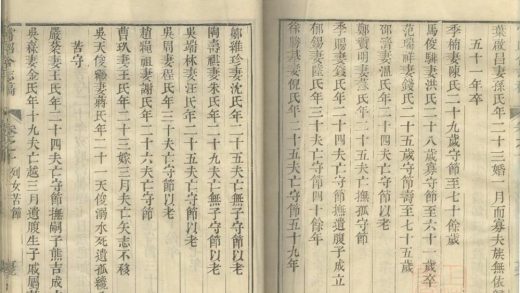 葉啟昌妻孫氏年二十三婚一月而寡夫族無依歸
五十一年卒
季侑妻陳氏二十九歲守節至七十餘歲
馬俊驊妻洪氏二十八歲寡守至六十一歲卒
范瑞祥妻錢氏二十五歲守節壽至七十五歲
邵壽妻溫氏年二十四夫亡守節以老
鄭寶明妻謝氏年二十五夫亡撫孤守節
季賜妻錢氏年二十四夫亡守節撫遺腹子成立
郁錫妻陸氏年三十夫亡守節四十餘年
徐勝基妻倪氏年二十五夫亡守節五十九年
鄭維珍妻沈氏年二十五夫亡守節以老
陶壽祺妻朱氏年二十六夫亡無子守節以老
吳端林妻汪氏年二十六夫亡守節以老
吳周妻程氏年三十夫亡守節以老
趙 祖妻謝氏年二十六夫亡守節
曹 妻王氏年二十三嫁三月夫亡矢志不移
吳天俊 妻蔣氏年二十一天俊溺水死遺孤纔
苦守
嚴榮妻王氏年二十四夫亡守節撫嗣子熊吉成
吳 妻金氏年十九夫亡越三月遺腹生子戚屬
卷之 列女苦節